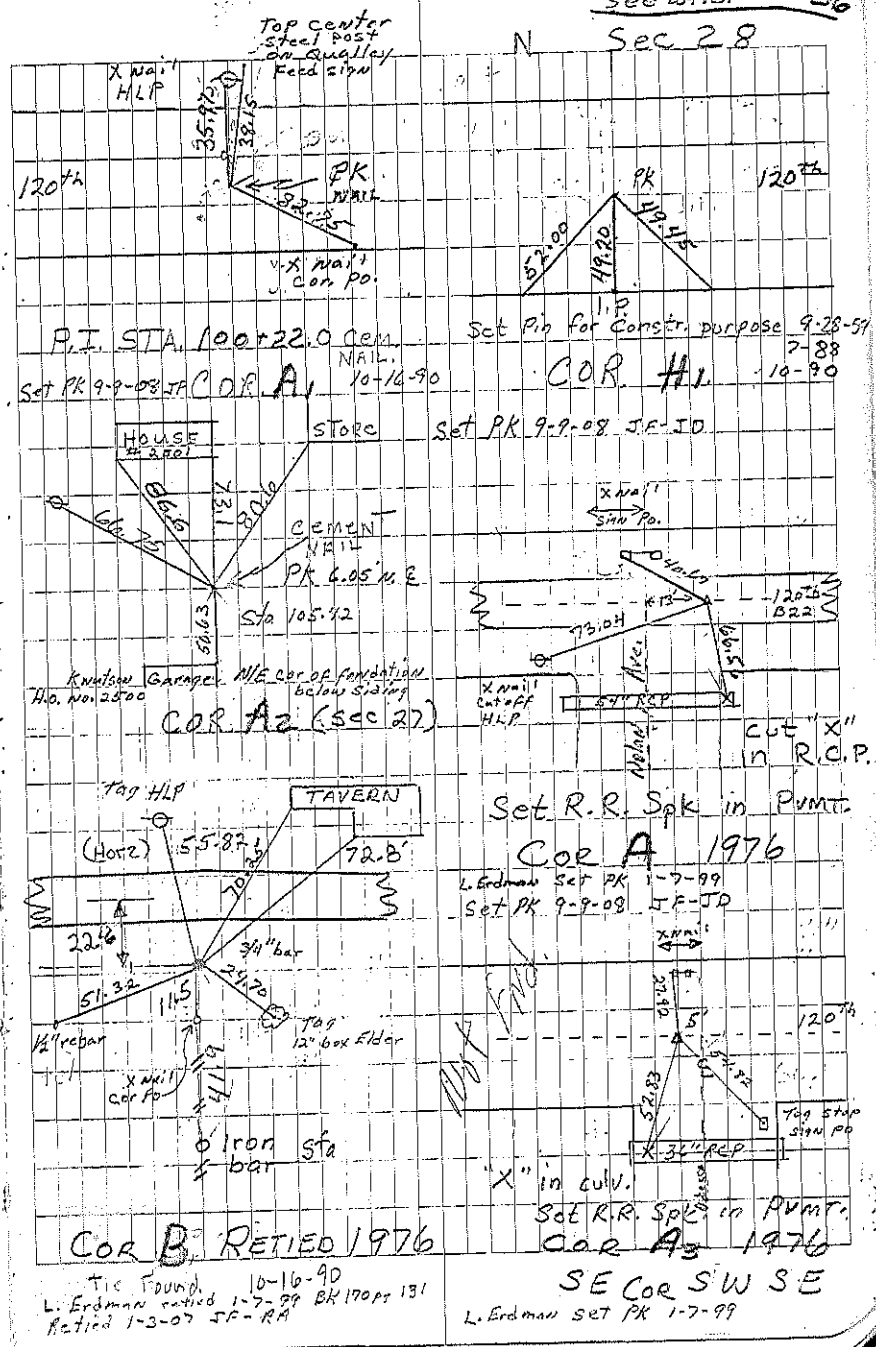 N Sec 28
Top Center
Steel Post
on Qualley
Feed sign
X Nail
HLP
35.97
38.15
120th
PK
NAIL
82.15
X Nail
Cor. Po.
P.I. STA. 100+22.0 Cem.
NAIL.
Set PK 9-9-08 JF COR A1 10-16-90
PK
120th
52.00
49.20
49.45
I.P.
Set Pin for Constr. purpose 9-28-59
7-88
COR H1. 10-90
Set PK 9-9-08 JF-JD
HOUSE
# 2501
STORE
66.75
86.6
73.1
80.6
CEMENT
NAIL
PK 6.05' N. E
Sta 105.42
50.63
Knutson Garage N/E cor of fondation
H.O. No. 2500 below siding
COR A2 (Sec 27)
X Nail
sign Po.
40.67
13'
120th
B22
73.04
66.56
X Nail
Cutoff
HLP
Ave.
54" RCP
Cut "X"
in R.C.P.
Set R.R. Spk in PVMT.
COR A 1976
L. Erdman Set PK 1-7-99
Set PK 9-9-08 JF-JD
Tag HLP
TAVERN
(Horz) 55.87
70.25'
72.8'
22.6
3/4" bar
51.32
11.5
24.70
1/2" rebar
Tag
12" box Elder
X Nail
Cor Po
41.9
Iron Sta
bar
COR B RETIED 1976
Tie Found. 10-16-90
L. Erdman retied 1-7-99 BK 170 PG 131
Retied 1-3-07 JF-RA
Not Fnd.
X Nail
27.90
5'
120th
52.83
Tag Stop
sign po
X 36" RCP
"X" in culv.
Set R.R. Spk. in PVMT.
COR A3 1976
SE COR SW SE
L. Erdman Set PK 1-7-99